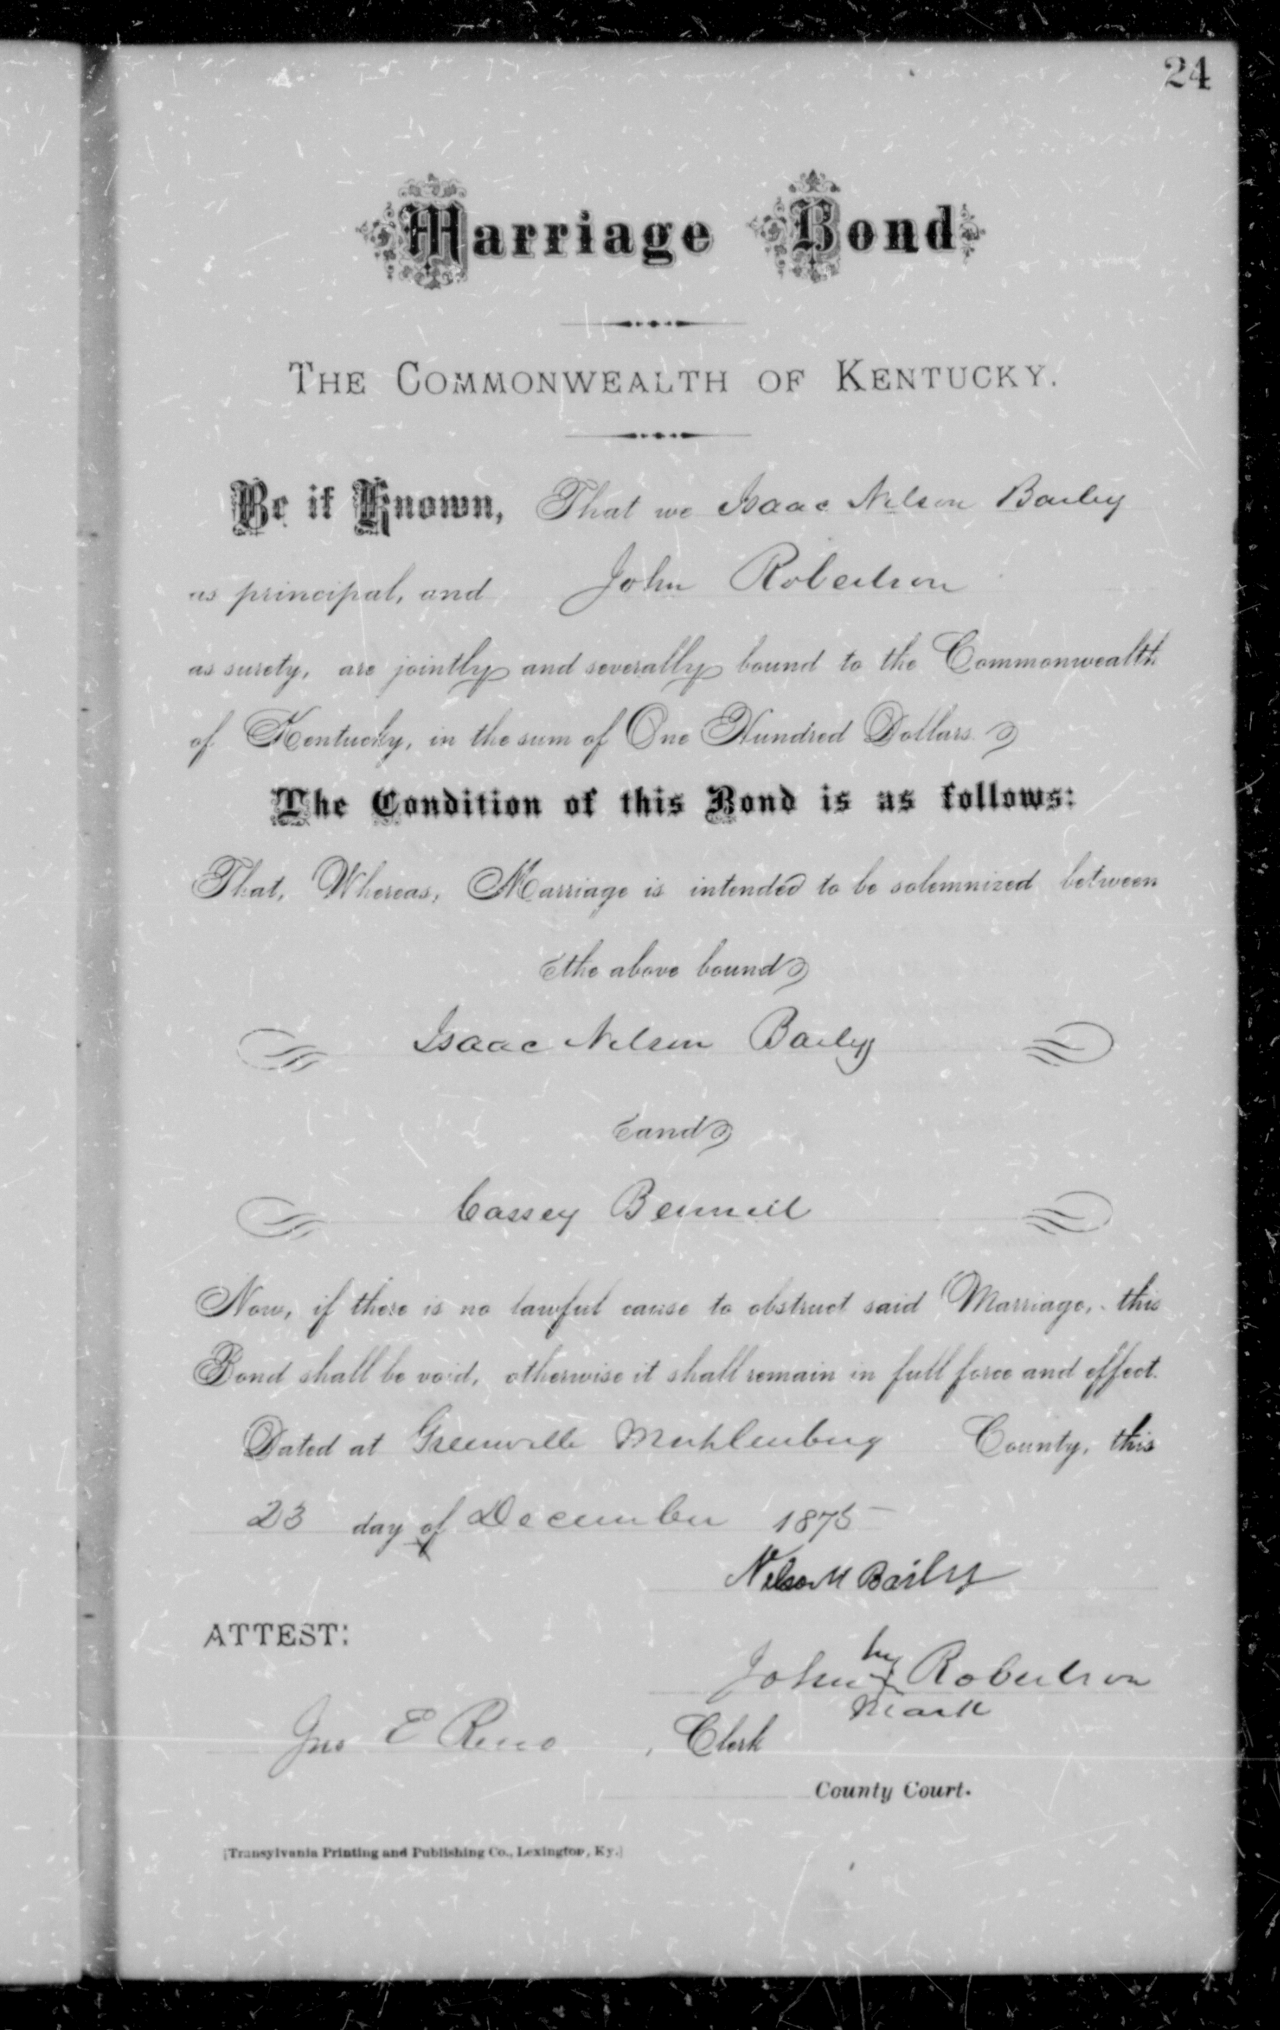 24
Marriage Bond
THE COMMONWEALTH OF KENTUCKY.
Be it Known, That we Isaac Nelson Bailey
as principal, and John Robertson
as surety, are jointly and severally bound to the Commonwealth
of Kentucky, in the sum of One Hundred Dollars.
The Condition of this Bond is as follows:
That, Whereas, Marriage is intended to be solemnized between
the above bound
Isaac Nelson Baily
and
Cassey Bennett
Now, if there is no lawful cause to obstruct said Marriage, this
Bond shall be void, otherwise it shall remain in full force and effect.
Dated at Greenville Muhlenburg County, this
23 day of December 1875
Nelson Baily
ATTEST:
John his x Robertson
mark
Jno E Reno, Clerk
County Court.
[Transylvania Printing and Publishing Co., Lexington, Ky.]